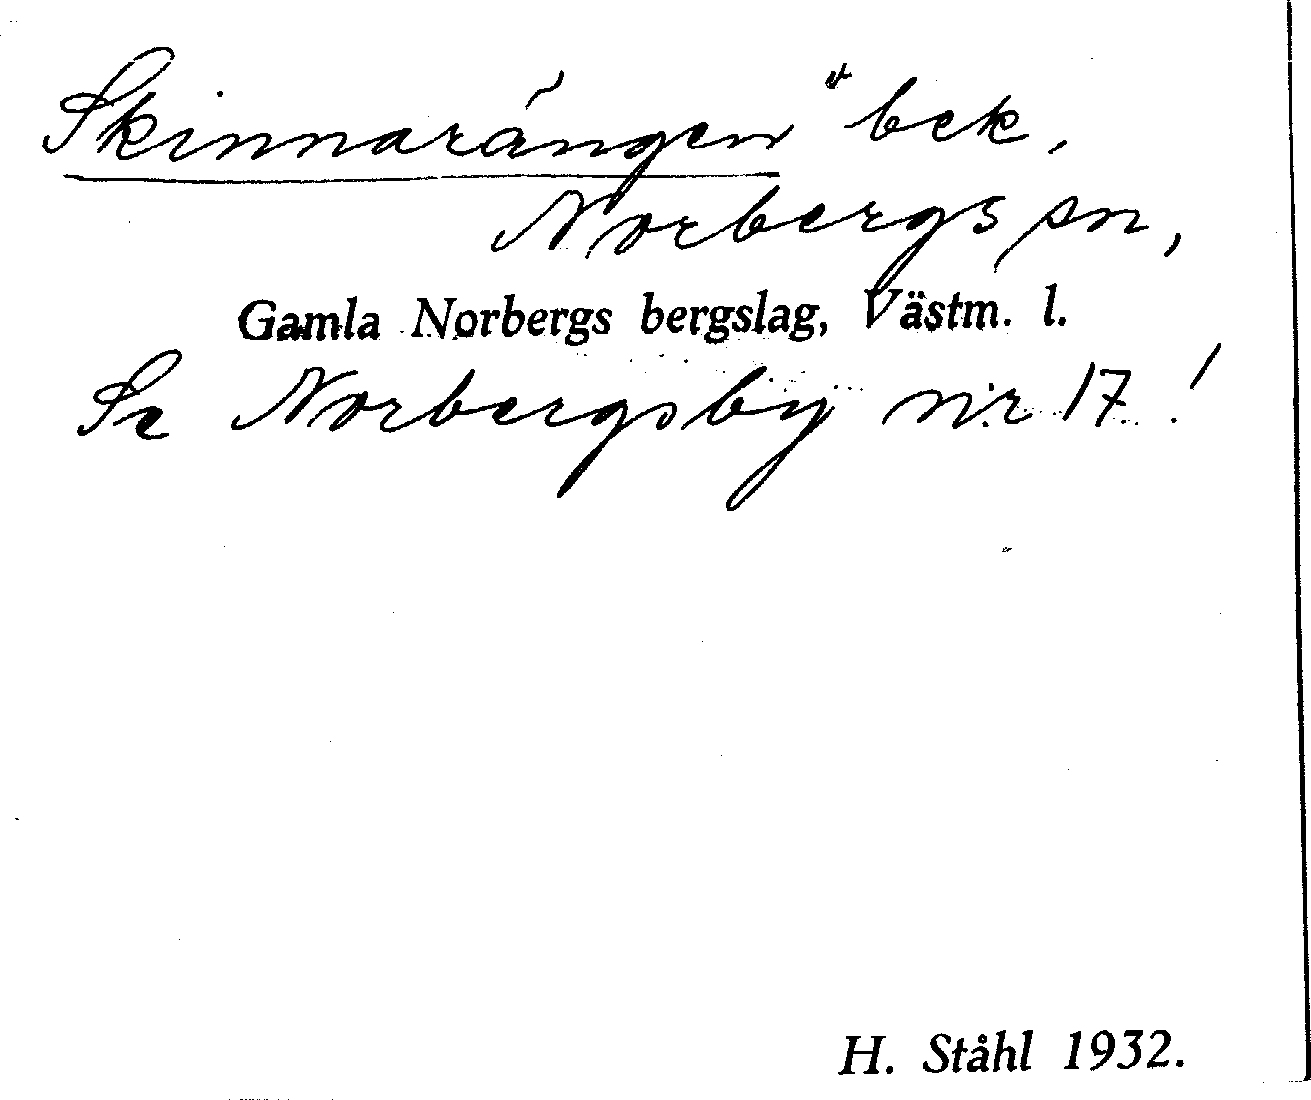 Skinnarängen" bek,
Norbergs sn,
Gamla Norbergs bergslag, Västm. l.
Se Norbergsby nr 17!
H. Ståhl 1932.